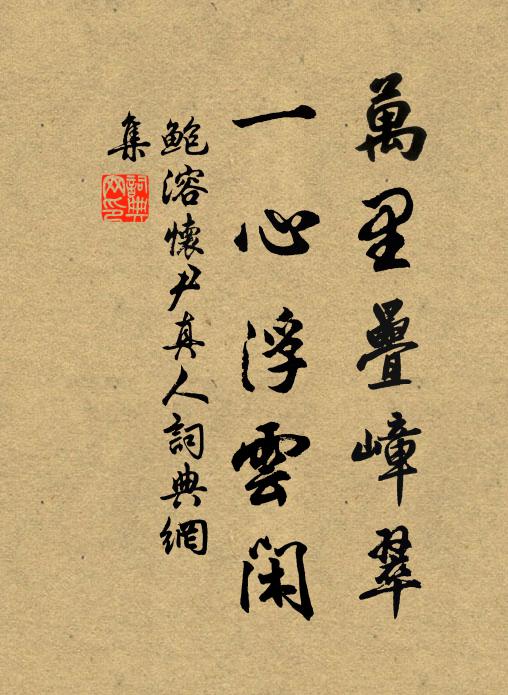 萬里疊嶂翠
一心浮雲閑
鮑溶懷尹真人詞典網
集
詞典
網印